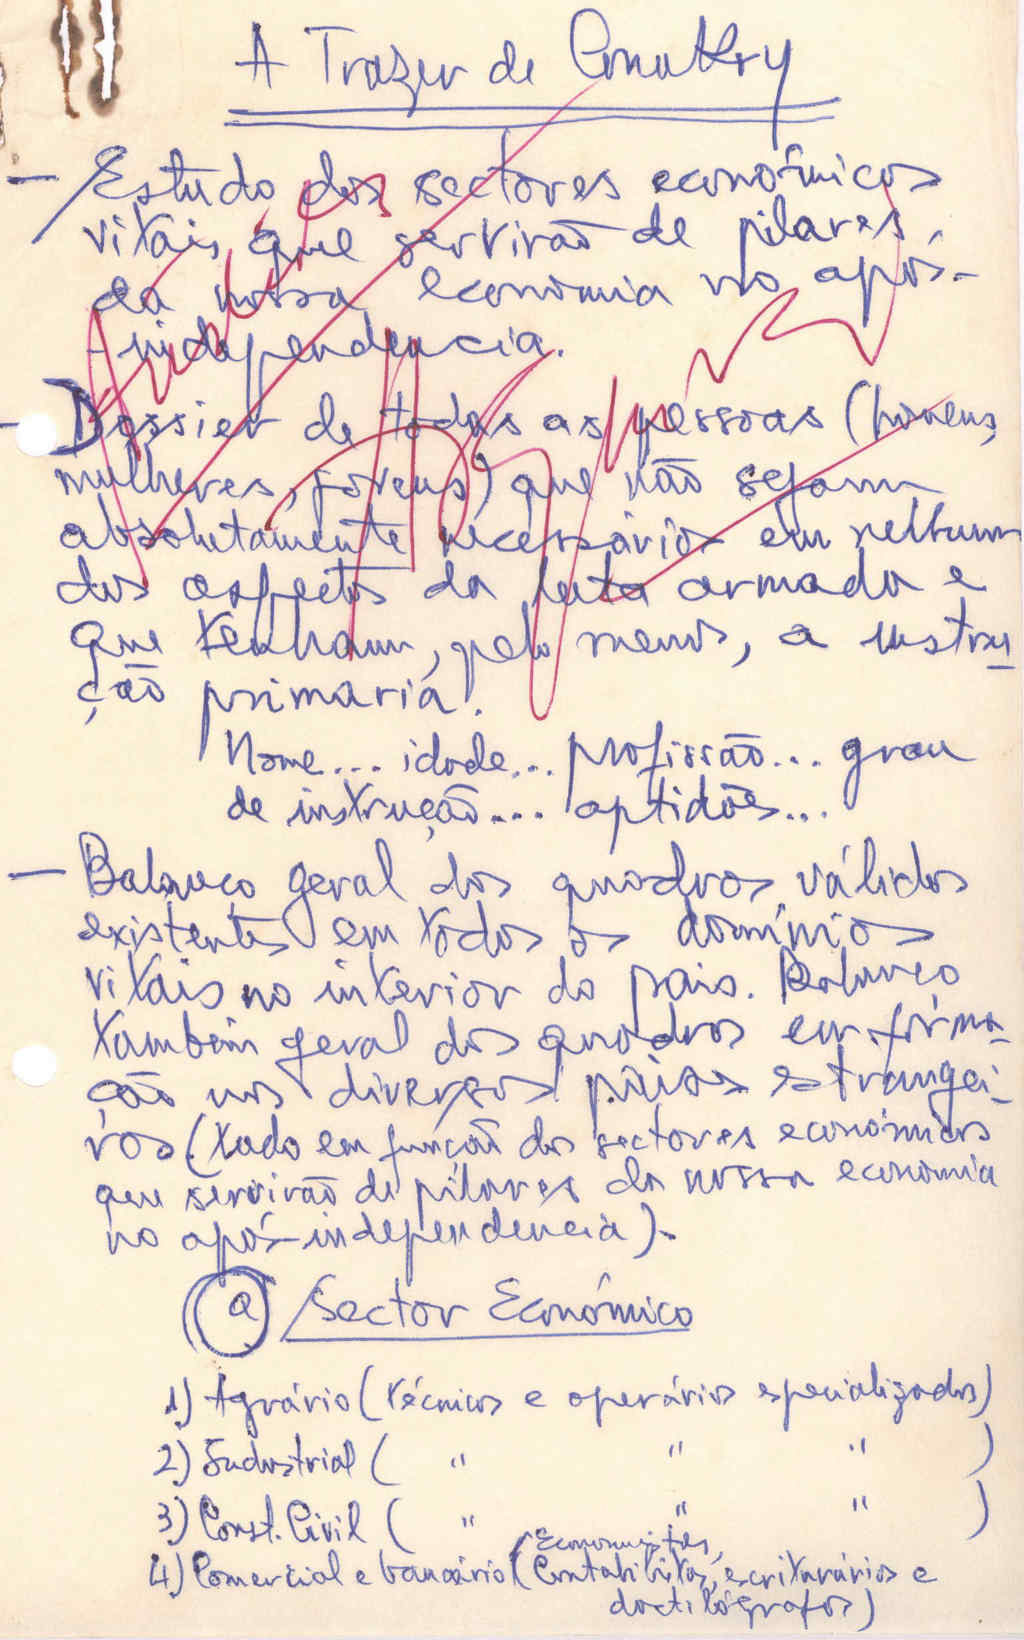 A Trazer de Conakry
- Estudo dos sectores económicos
vitais que servirão de pilares
da nossa economia no após-
-independencia.
- Dossier de todas as pessoas (homens,
mulheres, jovens) que não sejam
absolutamente necessários em nenhum
dos aspectos da luta armada e
que tenham, pelo menos, a instru-
ção primária.
Nome... idade... profissão... grau
de instrução... aptidões...
- Balanço geral dos quadros válidos
existentes em todos os domínios
vitais no interior do pais. Balanço
também geral dos quadros em forma-
ção nos diversos países estrangei-
ros (tudo em função dos sectores económicos
que servirão de pilares da nossa economia
no após-independência).
a) Sector Económico
1) Agrário (técnicos e operários especializados)
2) Industrial ( " " " )
3) Const. Civil ( " " " )
Economistas,
4) Comercial e bancário (Contabilistas, escriturários e
dactilógrafos)